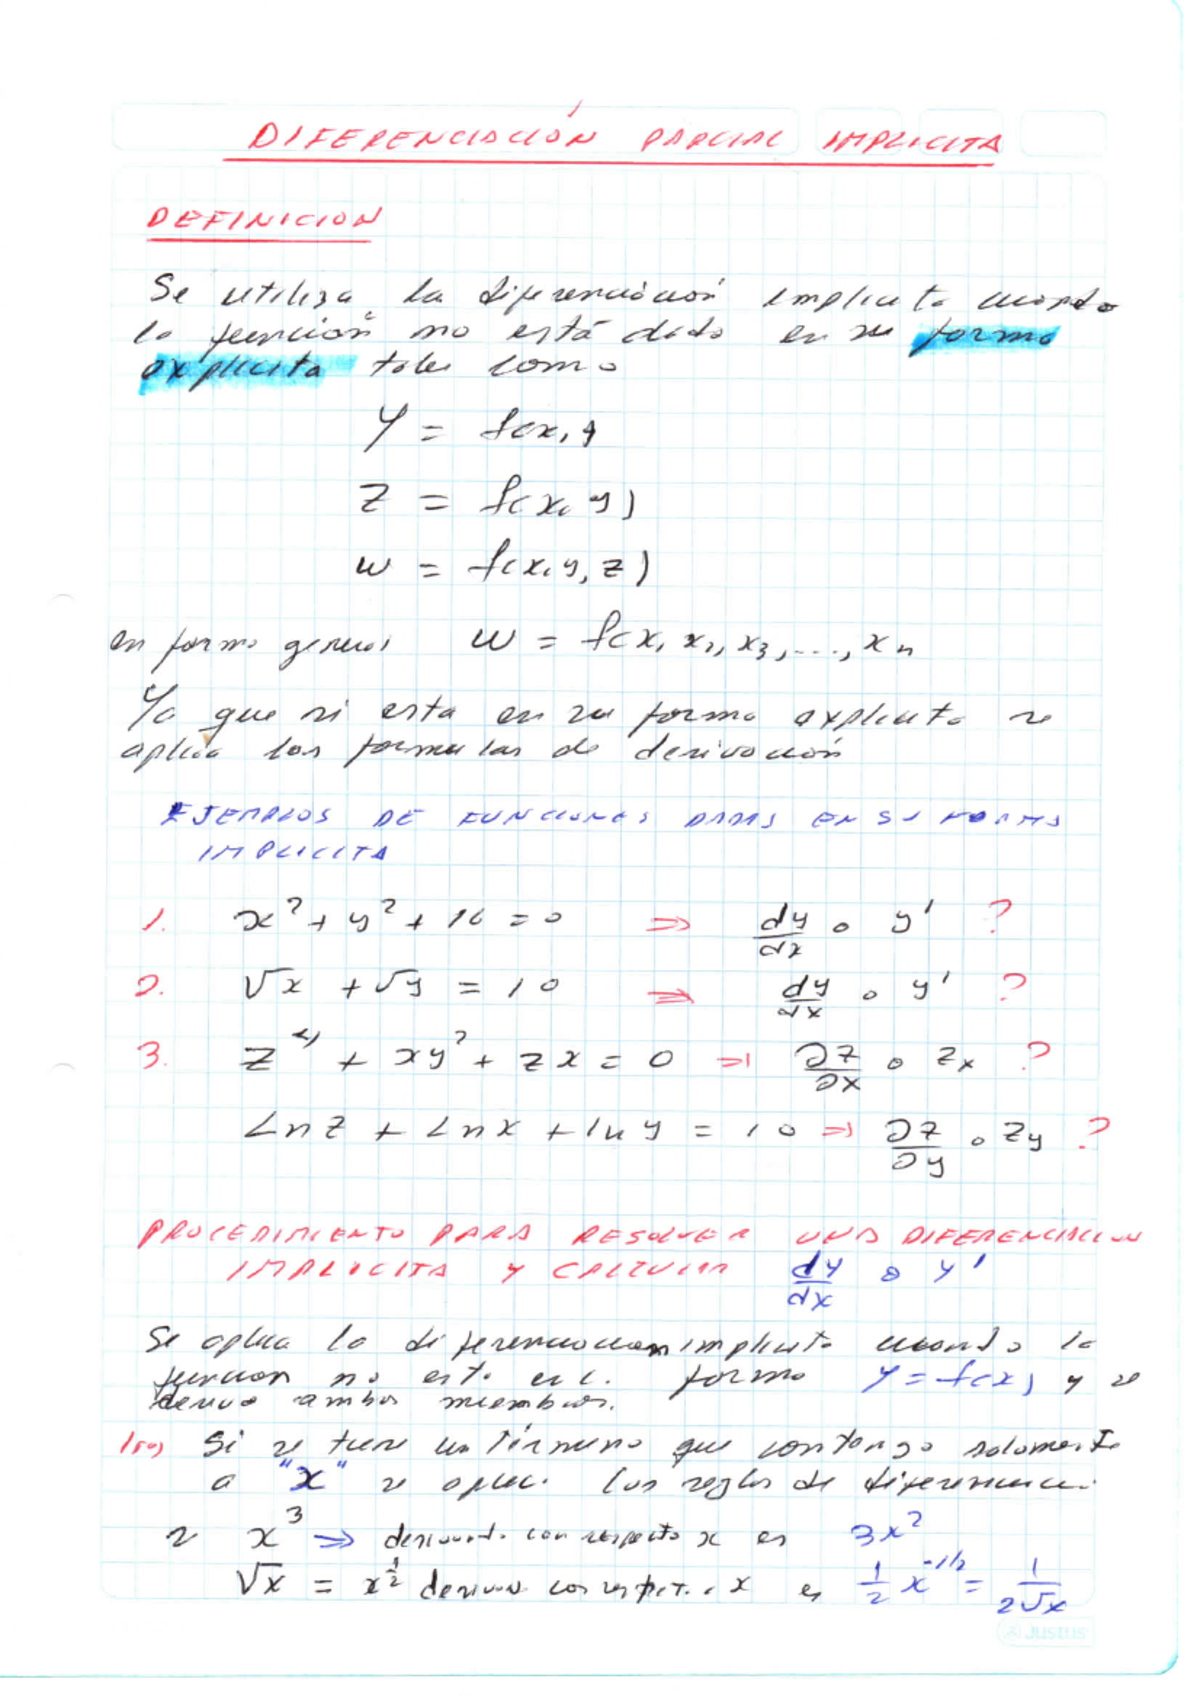 DIFERENCIACIÓN PARCIAL IMPLICITA
DEFINICION
Se utiliza la diferenciación implicita cuando
la función no está dada en su forma
explicita tales como
y = f(x,y
z = f(x, y)
w = f(x,y,z)
en forma general w = f(x, x2, x3, ..., xn
Ya que si esta en su forma explicita se
aplica las formulas de derivación
EJEMPLOS DE FUNCIONES DADAS EN SU FORMA
IMPLICITA
1. x² + y² + 16 = 0 => dy/dx o y' ?
2. √x + √y = 10 => dy/dx o y' ?
3. z + xy² + zx = 0 => ∂z/∂x o zx ?
Ln z + Ln x + ln y = 10 => ∂z/∂y o zy ?
PROCEDIMIENTO PARA RESOLVER UNA DIFERENCIACION
IMPLICITA Y CALCULAR dy/dx o y'
Se aplica la diferenciacion implicita cuando la
funcion no esta en l. forma y = f(x) y se
deriva ambos miembros.
1ro) Si se tiene un término que contenga solamente
a "x" se aplic. las reglas de diferenciac.
si x³ => derivad. con respecto x es 3x²
√x = x^½ deriva. con respet. a x es ½ x^-1/2 = 1/2√x
Justus